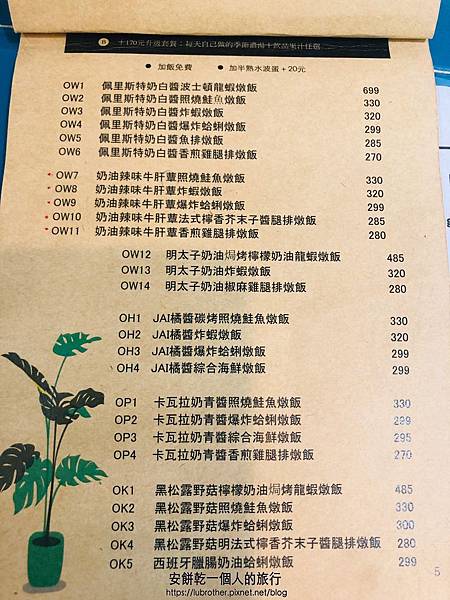 B +170元升級套餐:每天自己做的季節濃湯+飲品果汁任選
● 加飯免費 ● 加半熟水波蛋+20元
OW1 佩里斯特奶白醬波士頓龍蝦燉飯 699
OW2 佩里斯特奶白醬照燒鮭魚燉飯 330
OW3 佩里斯特奶白醬炸蝦燉飯 320
OW4 佩里斯特奶白醬爆炸蛤蜊燉飯 299
OW5 佩里斯特奶白醬魚排燉飯 285
OW6 佩里斯特奶白醬香煎雞腿排燉飯 270
OW7 奶油辣味牛肝蕈照燒鮭魚燉飯 330
OW8 奶油辣味牛肝蕈炸蝦燉飯 320
OW9 奶油辣味牛肝蕈爆炸蛤蜊燉飯 299
OW10 奶油辣味牛肝蕈法式檸香芥末子醬腿排燉飯 285
OW11 奶油辣味牛肝蕈香煎雞腿排燉飯 280
OW12 明太子奶油焗烤檸檬奶油龍蝦燉飯 485
OW13 明太子奶油炸蝦燉飯 320
OW14 明太子奶油椒麻雞腿排燉飯 280
OH1 JAI橘醬碳烤照燒鮭魚燉飯 330
OH2 JAI橘醬炸蝦燉飯 320
OH3 JAI橘醬爆炸蛤蜊燉飯 299
OH4 JAI橘醬綜合海鮮燉飯 299
OP1 卡瓦拉奶青醬照燒鮭魚燉飯 330
OP2 卡瓦拉奶青醬爆炸蛤蜊燉飯 299
OP3 卡瓦拉奶青醬綜合海鮮燉飯 295
OP4 卡瓦拉奶青醬香煎雞腿排燉飯 270
OK1 黑松露野菇檸檬奶油焗烤龍蝦燉飯 485
OK2 黑松露野菇照燒鮭魚燉飯 330
OK3 黑松露野菇爆炸蛤蜊燉飯 300
OK4 黑松露野菇明法式檸香芥末子醬腿排燉飯 280
OK5 西班牙臘腸奶油蛤蜊燉飯 299
5
安餅乾一個人的旅行
https://lubrother.pixnet.net/blog